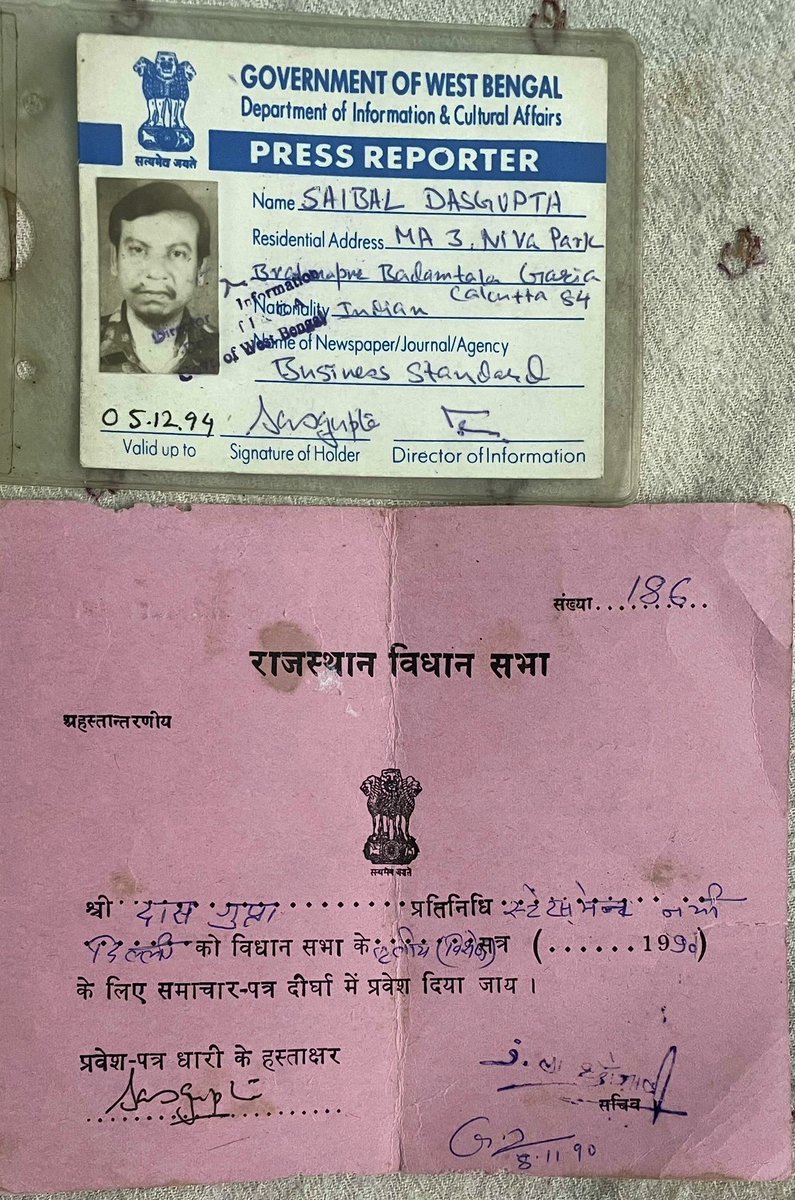 सत्यमेव जयते
GOVERNMENT OF WEST BENGAL
Department of Information & Cultural Affairs
PRESS REPORTER
Name SAIBAL DASGUPTA
Residential Address MA 3, Niva Park
Brahmapur Badamtala Garia
Calcutta 84
Nationality Indian
Director
Information
of West Bengal
Name of Newspaper/Journal/Agency
Business Standard
05.12.94
Valid up to
Dasgupta
Signature of Holder
Director of Information
संख्या.. 186 ..
राजस्थान विधान सभा
अहस्तान्तरणीय
सत्यमेव जयते
श्री दास गुप्ता प्रतिनिधि स्टेट्समेन्ट नयी
दिल्ली को विधान सभा के (विशेष) सत्र (...... 1990)
के लिए समाचार-पत्र दीर्घा में प्रवेश दिया जाय ।
प्रवेश-पत्र धारी के हस्ताक्षर
Dasgupta
सचिव
8.11.90